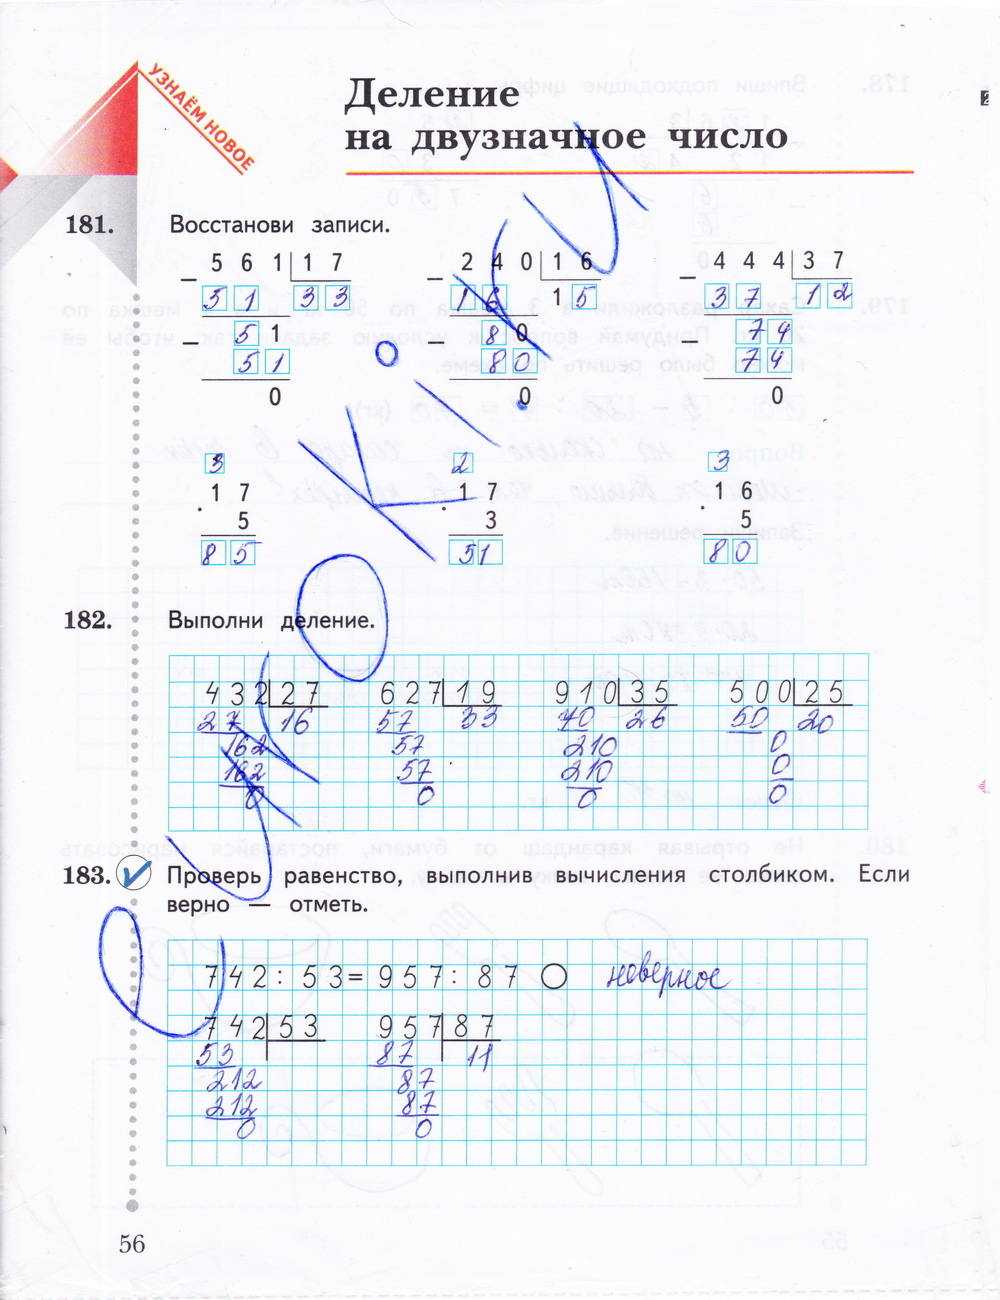 УЗНАЁМ НОВОЕ
Деление
на двузначное число
181. Восстанови записи.
5 6 1 | 1 7
− 5 1 3 3
5 1
− 5 1
0
2 4 0 | 1 6
− 1 6 1 5
8 0
− 8 0
0
4 4 4 | 3 7
− 3 7 1 2
7 4
− 7 4
0
3
1 7
· 5
8 5
2
1 7
· 3
5 1
3
1 6
· 5
8 0
182. Выполни деление.
4 3 2 | 2 7
27 16
162
162
0
6 2 7 | 1 9
57 33
57
57
0
9 1 0 | 3 5
70 26
210
210
0
5 0 0 | 2 5
50 20
0
0
0
183. Проверь равенство, выполнив вычисления столбиком. Если
верно — отметь.
7 4 2 : 5 3 = 9 5 7 : 8 7 неверное
7 4 2 | 5 3
53
212
212
0
9 5 7 | 8 7
87 11
87
87
0
56